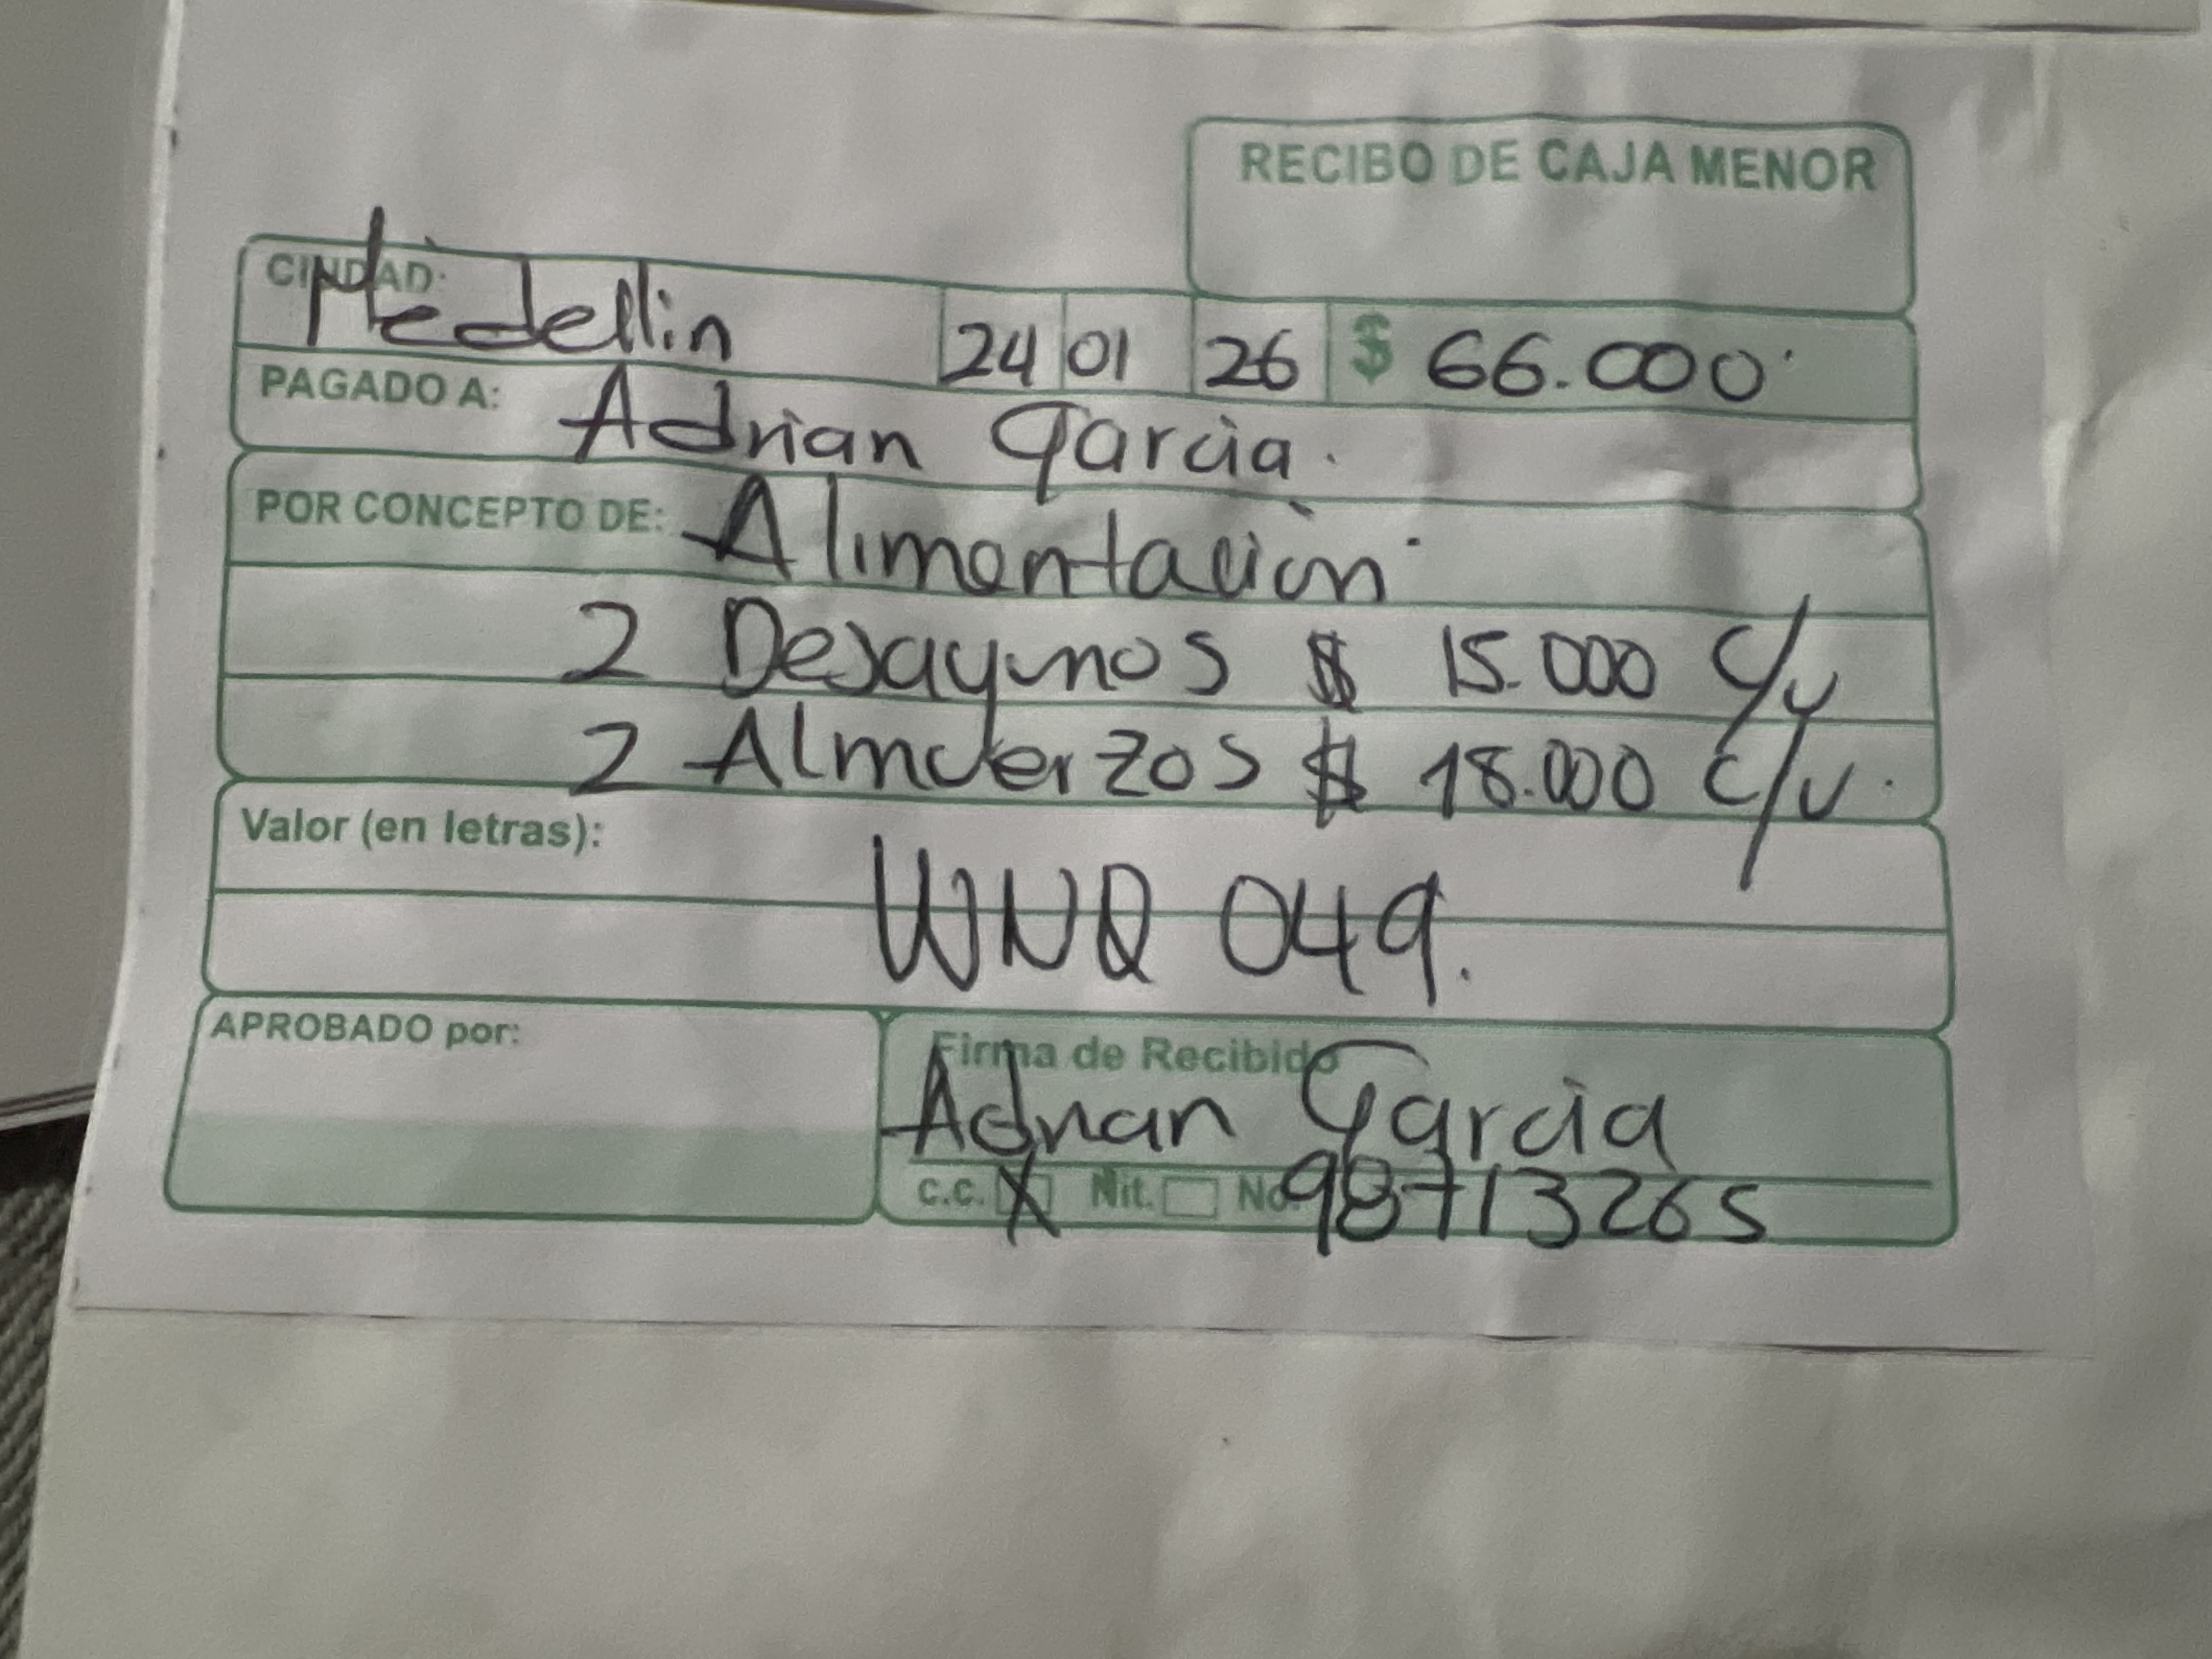 RECIBO DE CAJA MENOR
CIUDAD: Medellin 24 01 26 $ 66.000
PAGADO A: Adrian Garcia.
POR CONCEPTO DE: Alimentación
2 Desayunos $ 15.000 c/u
2 Almuerzos $ 18.000 c/u.
Valor (en letras):
WNQ 049.
APROBADO por:
Firma de Recibido
Adrian Garcia
C.C. X Nit. No. 98713265